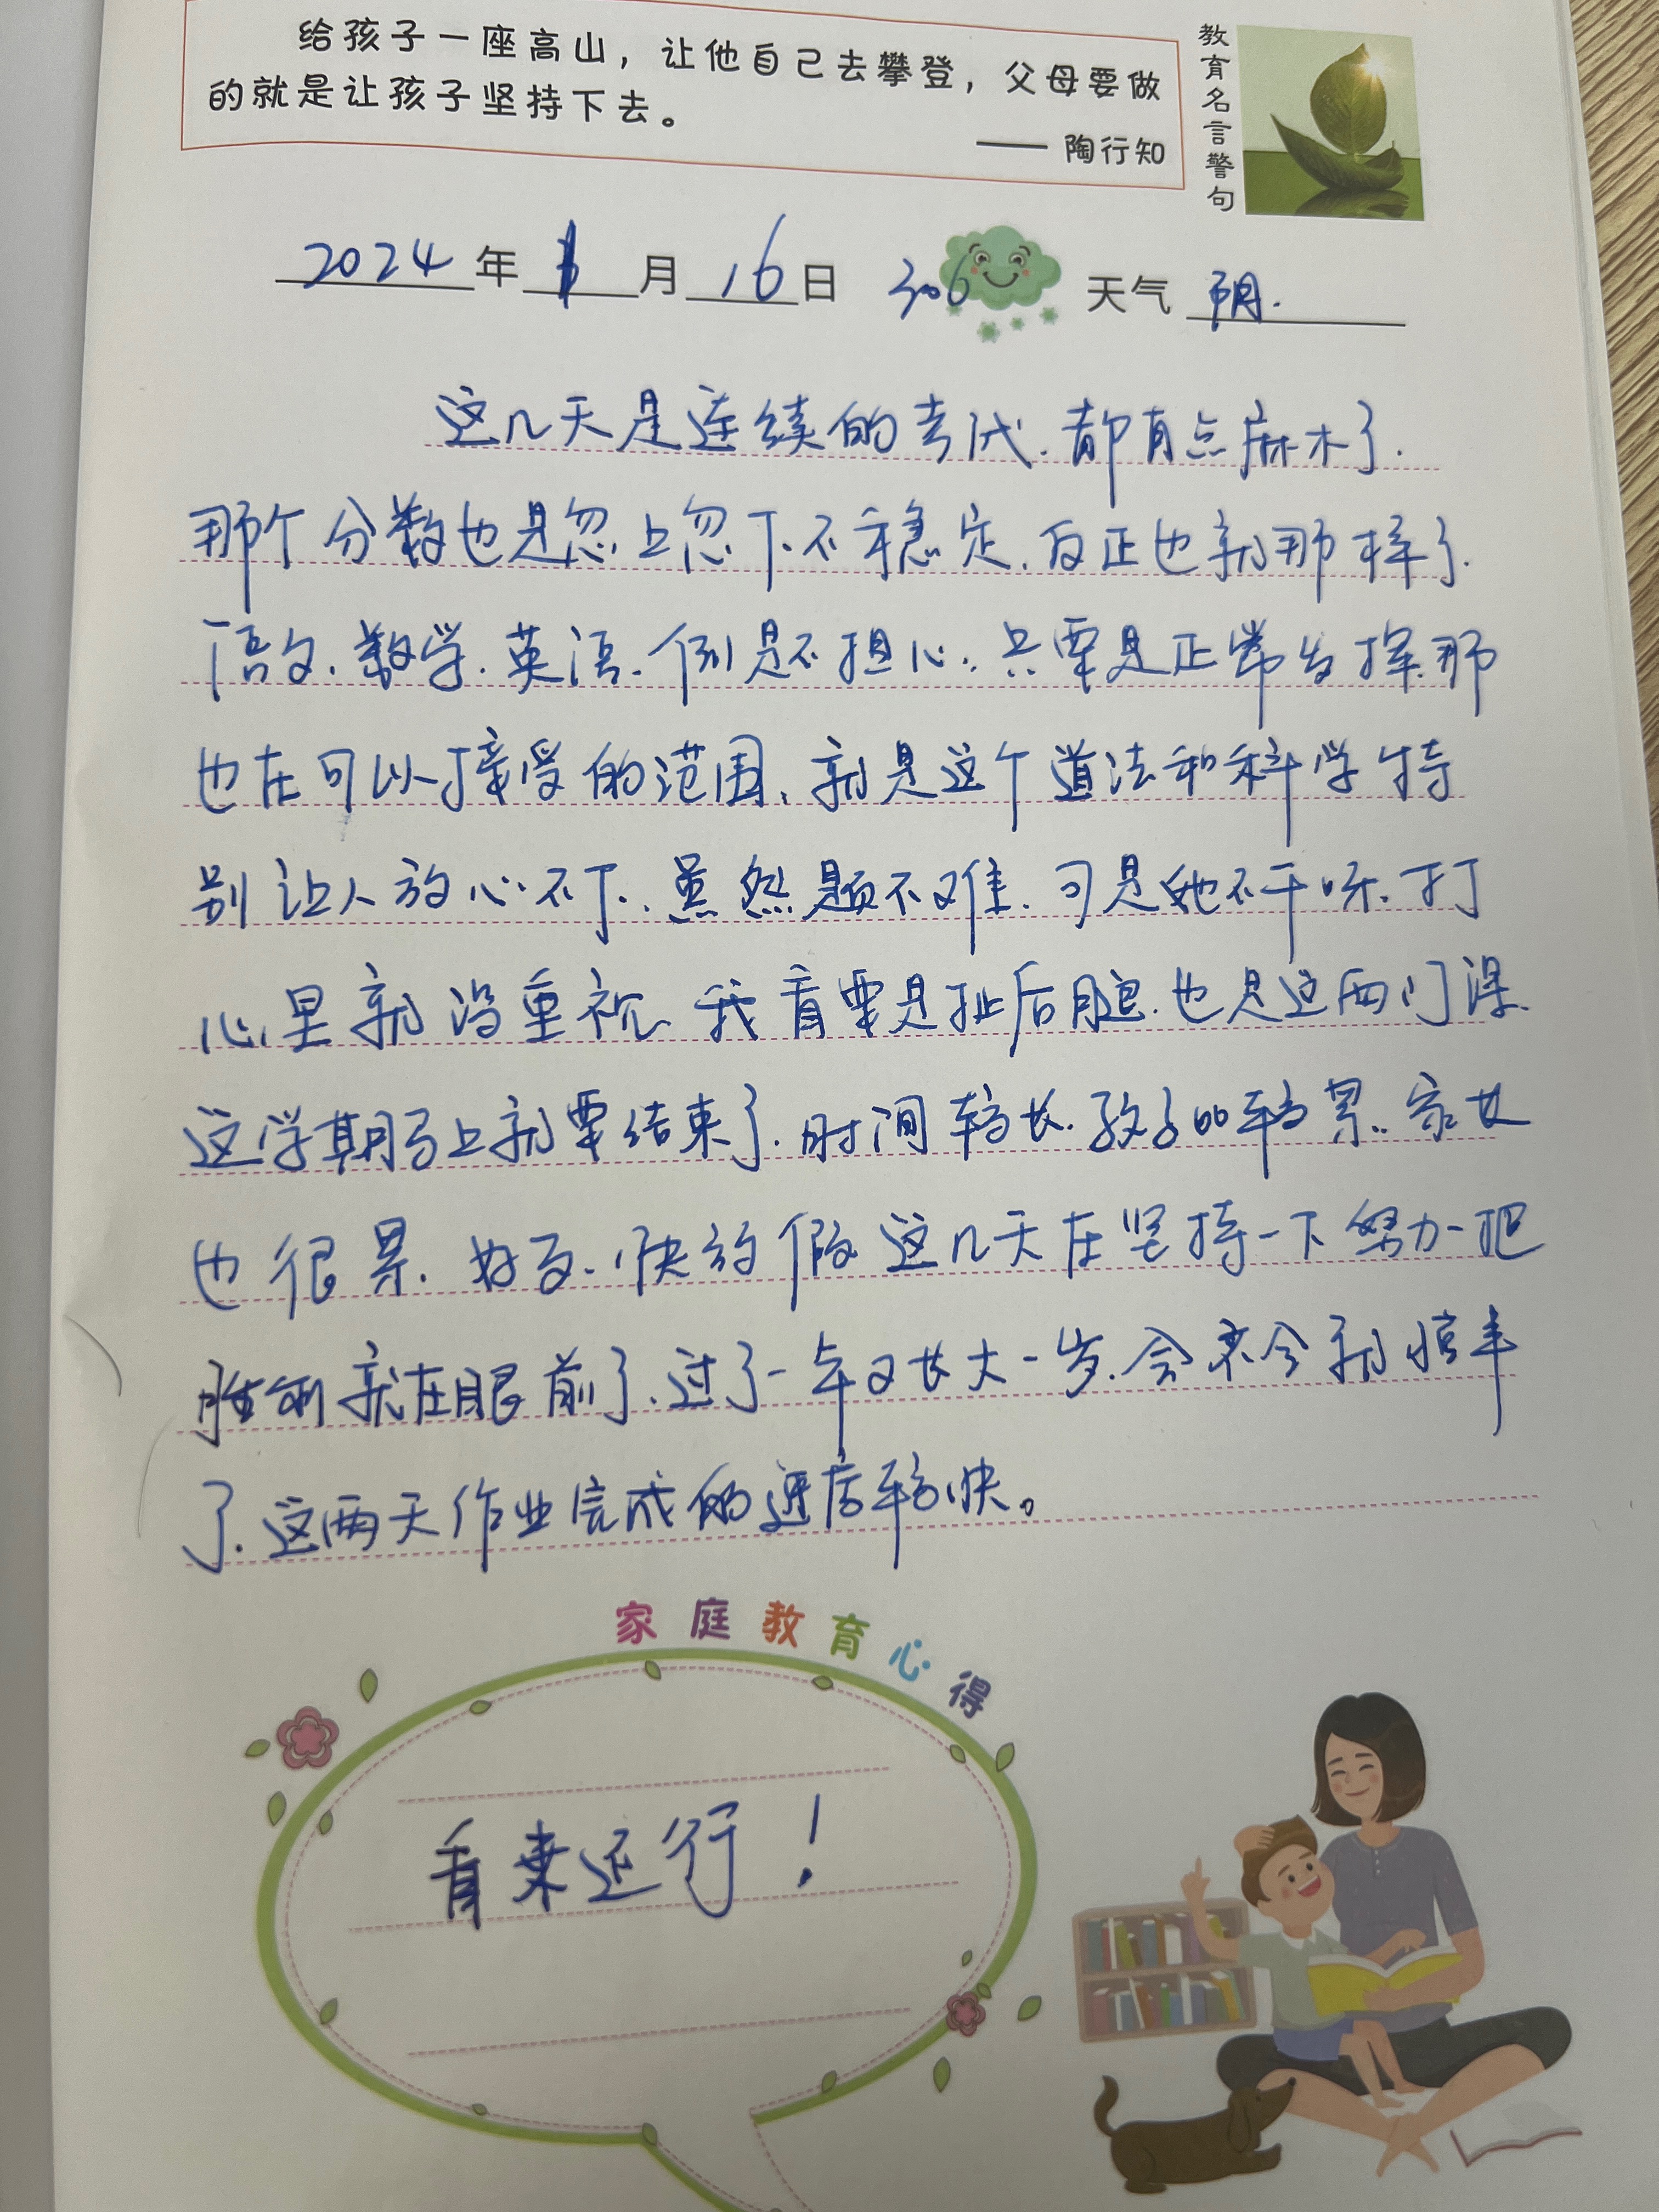 给孩子一座高山，让他自己去攀登，父母要做
的就是让孩子坚持下去。
—— 陶行知
教育名言警句
2024年1月16日 306 天气 阴.
这几天是连续的考试.都有点麻木了.
那个分数也是忽上忽下.不稳定.反正也就那样了.
语文.数学.英语.倒是不担心.只要是正常发挥.那
也在可以接受的范围.就是这个道法和科学特
别让人放心不下.虽然题不难.可是她不干呀.打
心里就没重视.我看要是扯后腿.也是这两门课.
这学期马上就要结束了.时间较长.孩子的较累.家长
也很累.好了.快放假 这几天在坚持一下努力一把
胜利就在眼前了.过了一年又长大一岁.会不会就懂事
了.这两天作业完成的速度较快。
家庭教育心得
看来还行！